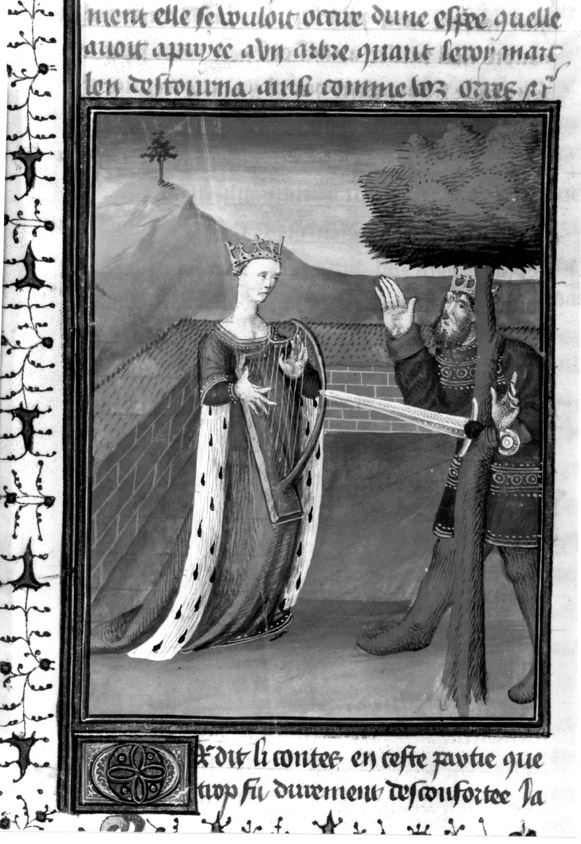 ment elle se vouloit occire dune espee quelle
avoit apuyee a vn arbre quant le roy marc
len destourna ainsi comme voz orres si
Or dit li contes en ceste partie que
trop fu durement desconfortee la